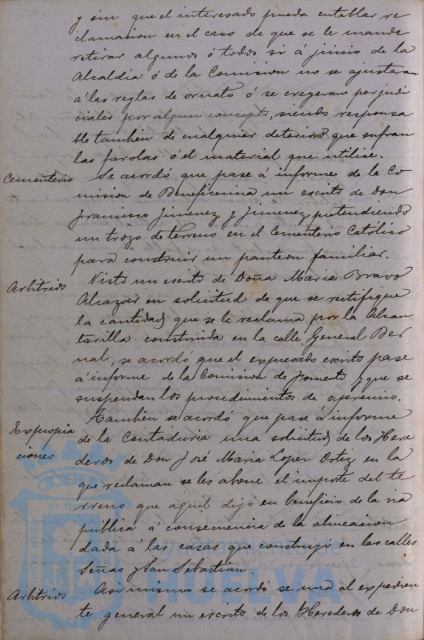 y sin que el interesado pueda entablar re
clamacion en el caso de que se le mande
retirar algunos ó todos si á juicio de la
Alcaldia ó de la Comision no se ajustaran
á las reglas de ornato ó se creyeran perjudi
ciales por algun concepto, siendo responsa
ble tambien de cualquier deterioro que sufran
las farolas ó el material que utilice.
Cementerio Se acordó que pase á informe de la Co
mision de Beneficencia un escrito de Don
Francisco Jimenez y Jimenez pretendiendo
un trozo de terreno en el Cementerio Católico
para construir un panteon familiar.
Arbitrios Visto un escrito de Doña Maria Bravo
Alcazar en solicitud de que se rectifique
la cantidad que se le reclama por la Alcan
tarilla construida en la calle General Ber
nal, se acordó que el expresado escrito pase
á informe de la Comision de Fomento y que se
suspendan los procedimientos de apremio.
Expropia
ciones
Tambien se acordó que pase á informe
de la Contaduria una solicitud de los Here
deros de Don José Maria Lopez Ortiz en la
que reclaman se les abone el importe del te
rreno que aquel dejó en beneficio de la via
pública á consecuencia de la alineacion
dada á las casas que construyó en las calles
Señas y San Sebastian.
Arbitrios Asi mismo se acordó se una al expedien
te general un escrito de los Herederos de Don
HUELVA